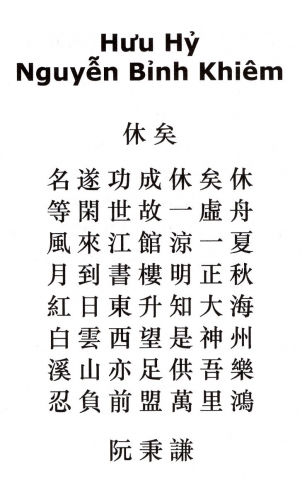 Hưu Hỷ
Nguyễn Bỉnh Khiêm
休矣
名遂功成休矣休
等閑世故一虛舟
風來江館涼一夏
月到書樓明正秋
紅日東升知大海
白雲西望是神州
溪山亦足供吾樂
忍負前盟萬里鴻
阮秉謙